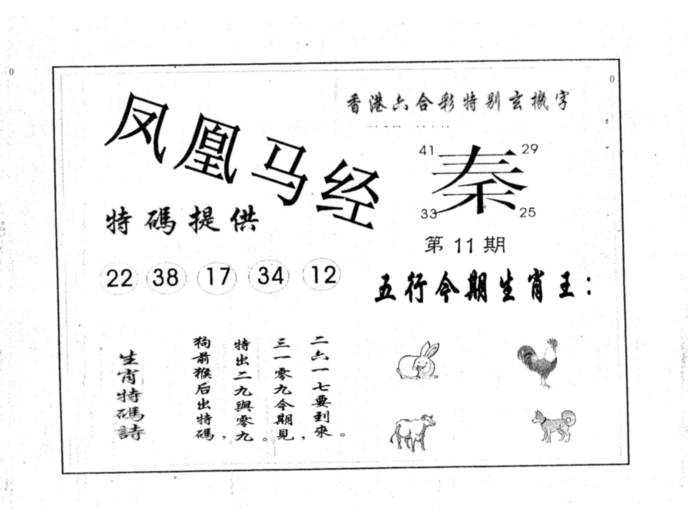 香港六合彩特别玄機字
凤凰马经
41 29
秦
33 25
特碼提供
第11期
22 38 17 34 12
五行今期生肖王：
生肖特碼詩
二六一七要到來。
三一零九今期見，
特出二九與零九。
狗前猴后出特碼，
0
0